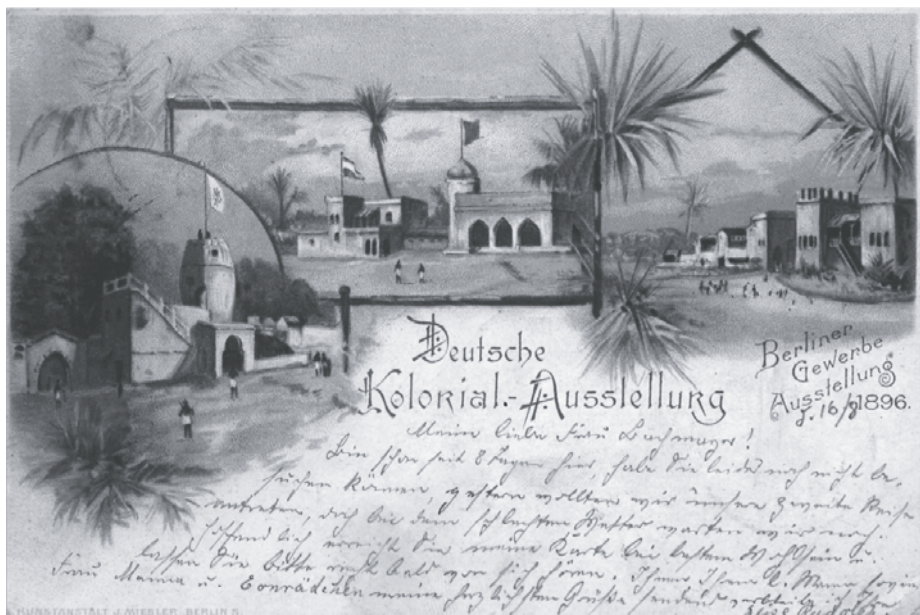 Deutsche
Kolonial.-Ausstellung
Berliner
Gewerbe
Ausstellung
J. 16/8 1896.
Meine liebe Frau Bachmayer!
Bin schon seit 8 Tagen hier, habe Sie leider noch nicht be-
suchen können, gestern wollten wir unsere zweite Reise
antreten, doch bei dem schlechten Wetter warten wir noch.
Hoffend ich erreicht Sie meine Karte bei bestem Wohlsein u.
lassen Sie bitte recht bald von sich hören. Ihnen Ihrem l. Mann sowie
Frau Manna u. Conrädchen meine herzlichsten Grüße sendend verbleibe ich Ihre
KUNSTANSTALT J. MIESLER, BERLIN S.